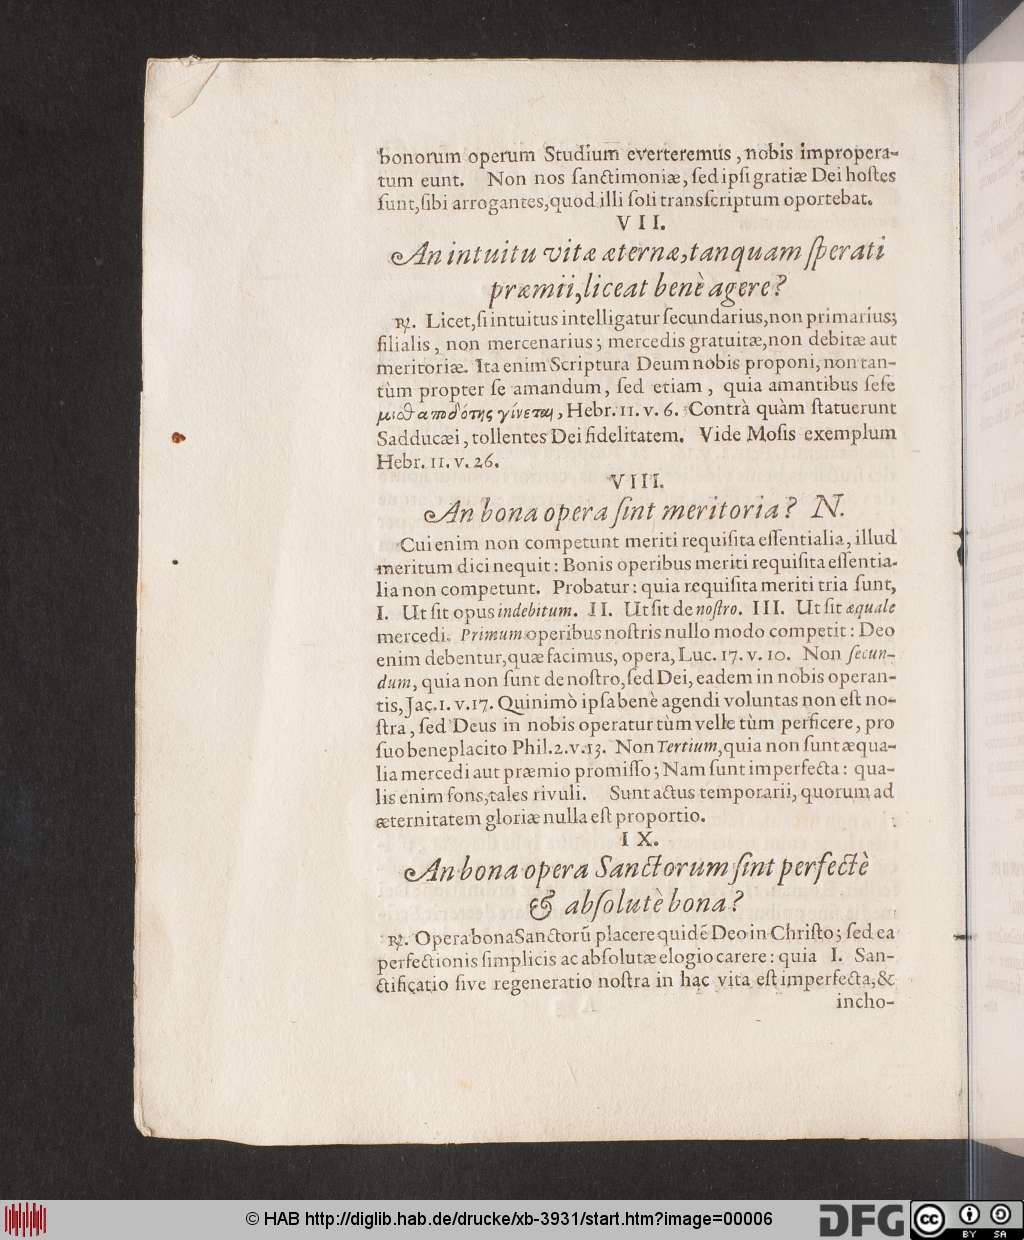 bonorum operum Studium everteremus, nobis impropera-
tum eunt. Non nos ſanctimoniæ, ſed ipſi gratiæ Dei hoſtes
ſunt, ſibi arrogantes, quod illi ſoli transſcriptum oportebat.
VII.
An intuitu vitæ æternæ, tanquam ſperati
præmii, liceat benè agere?
℞. Licet, ſi intuitus intelligatur ſecundarius, non primarius;
filialis, non mercenarius; mercedis gratuitæ, non debitæ aut
meritoriæ. Ita enim Scriptura Deum nobis proponi, non tan-
tùm propter ſe amandum, ſed etiam, quia amantibus ſeſe
μιοθαποδότης γίνεται, Hebr. 11. v. 6. Contrà quàm ſtatuerunt
Sadducæi, tollentes Dei fidelitatem. Vide Moſis exemplum
Hebr. 11. v. 26.
VIII.
An bona opera ſint meritoria? N.
Cui enim non competunt meriti requiſita eſſentialia, illud
meritum dici nequit: Bonis operibus meriti requiſita eſſentia-
lia non competunt. Probatur: quia requiſita meriti tria ſunt,
I. Ut ſit opus indebitum. II. Ut ſit de noſtro. III. Ut ſit æquale
mercedi. Primum operibus noſtris nullo modo competit: Deo
enim debentur, quæ facimus, opera, Luc. 17. v. 10. Non ſecun-
dum, quia non ſunt de noſtro, ſed Dei, eadem in nobis operan-
tis, Jac. 1. v. 17. Quinimò ipſa benè agendi voluntas non eſt no-
ſtra, ſed Deus in nobis operatur tùm velle tùm perficere, pro
ſuo beneplacito Phil. 2. v. 13. Non Tertium, quia non ſunt æqua-
lia mercedi aut præmio promiſſo; Nam ſunt imperfecta: qua-
lis enim fons, tales rivuli. Sunt actus temporarii, quorum ad
æternitatem gloriæ nulla eſt proportio.
IX.
An bona opera Sanctorum ſint perfectè
& abſolutè bona?
℞. Opera bona Sanctorũ placere quidẽ Deo in Chriſto; ſed ea
perfectionis ſimplicis ac abſolutæ elogio carere: quia I. San-
ctificatio ſive regeneratio noſtra in hac vita eſt imperfecta, &
incho-
© HAB http://diglib.hab.de/drucke/xb-3931/start.htm?image=00006
DFG
cc BY SA